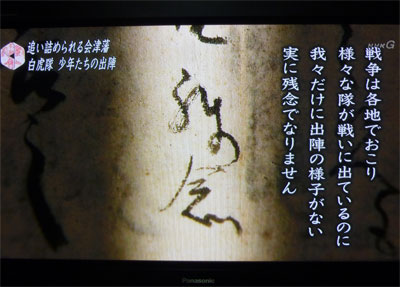 追い詰められる会津藩
白虎隊 少年たちの出陣
NHK G
戦争は各地でおこり
様々な隊が戦いに出ているのに
我々だけに出陣の様子がない
実に残念でなりません
残念
Panasonic